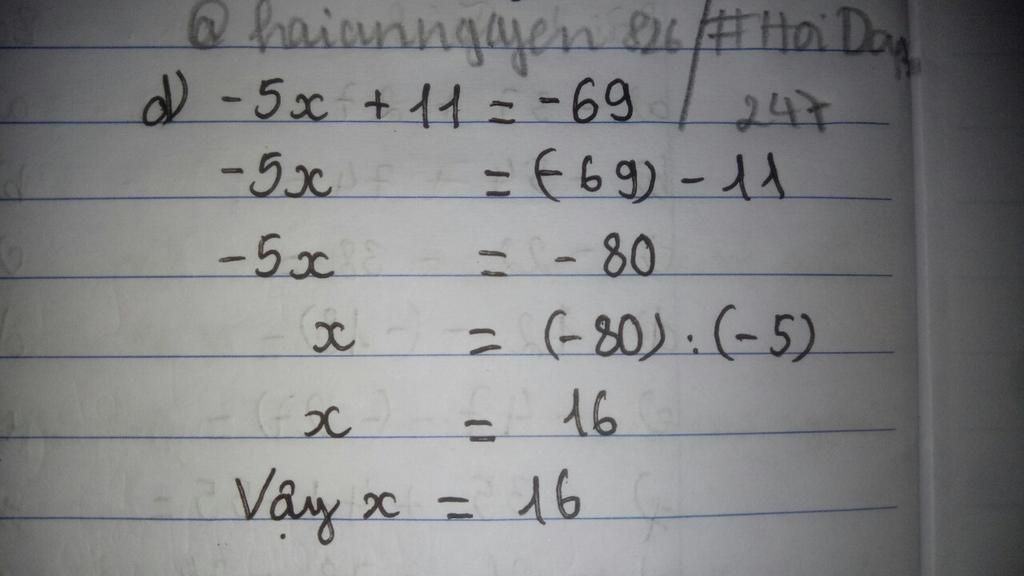 @ haianngayen 826 / # Hoi Dap
d) -5x + 11 = -69 / 247
-5x = (-69) - 11
-5x = - 80
x = (-80) : (-5)
x = 16
Vậy x = 16